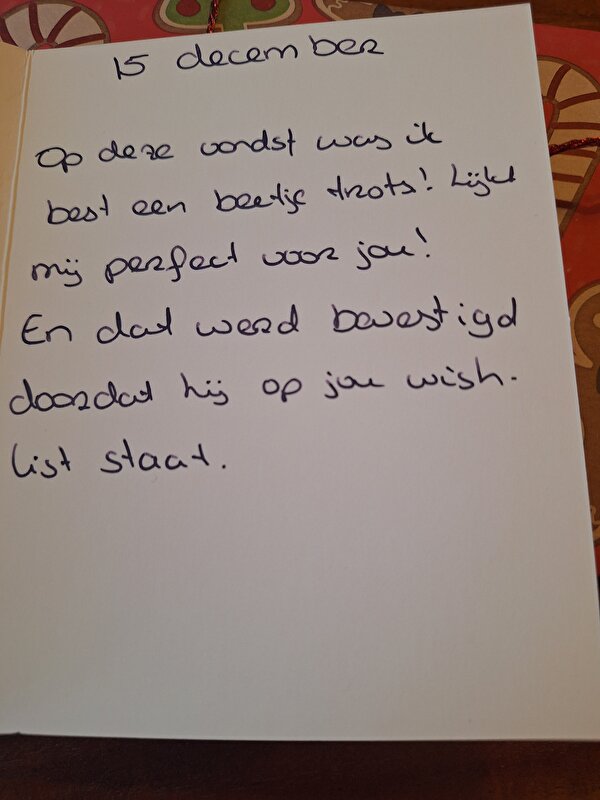 15 december
Op deze vondst was ik
best een beetje trots! Lijkt
mij perfect voor jou!
En dat werd bevestigd
doordat hij op jou wish-
list staat.